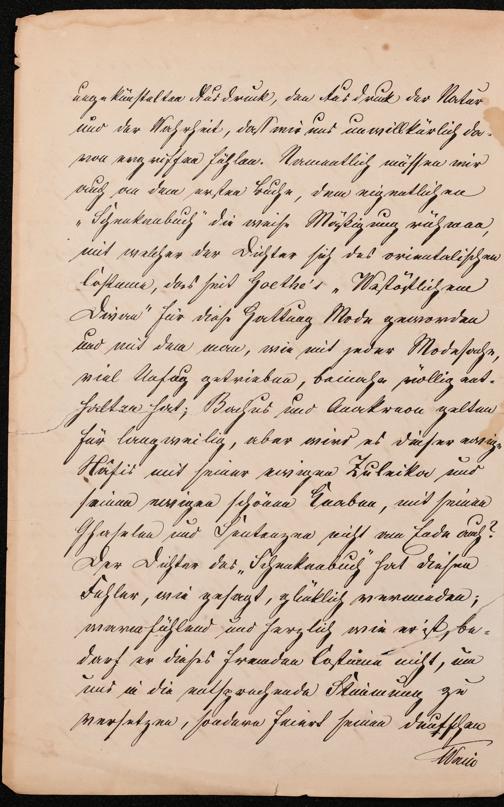 ungekünstelten Ausdruck, den Ausdruck der Natur
und der Wahrheit, daß wir uns unwillkürlich da-
von ergriffen fühlen. Namentlich müssen wir
auch an dem ersten Buche, dem eigentlichen
„Schenkenbuch“ die weise Mäßigung rühmen,
mit welcher der Dichter sich des orientalischen
Costüms, das seit Goethe's „Westöstlichem
Divan“ für diese Gattung Mode geworden
und mit dem man, wie mit jeder Modesache,
viel Unfug getrieben, beinahe völlig ent-
halten hat; Bachus und Anakreon gelten
für langweilig, aber wird es dieser ewige
Hafis mit seiner ewigen Zuleika und
seinen ewigen schönen Knaben, mit seinen
Ghaselen und Sentenzen nicht am Ende auch?
Der Dichter des „Schenkenbuch“ hat diesen
Fehler, wie gesagt, glücklich vermieden;
warmfühlend und herzlich wie er ist, be-
darf er dieses fremden Costüms nicht, um
uns in die entsprechende Stimmung zu
versetzen, sondern feiert seinen deutschen
Wein